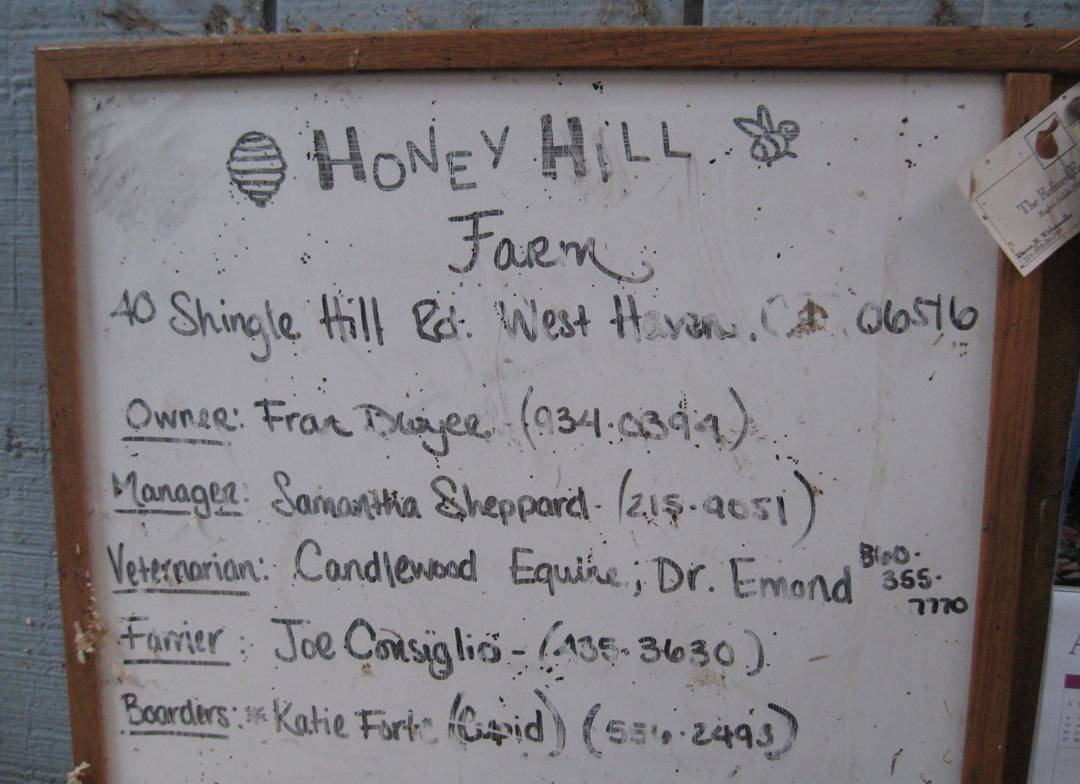 HONEY HILL
Farm
40 Shingle Hill Rd. West Haven, CT 06516
Owner: Fran Dwyer - (934.0399)
Manager: Samantha Sheppard - (215.9051)
Veternarian: Candlewood Equine; Dr. Emond 860.
355.
7770
Farrier: Joe Consiglio - (435.3630)
Boarders: * Katie Forte (Cupid)
The